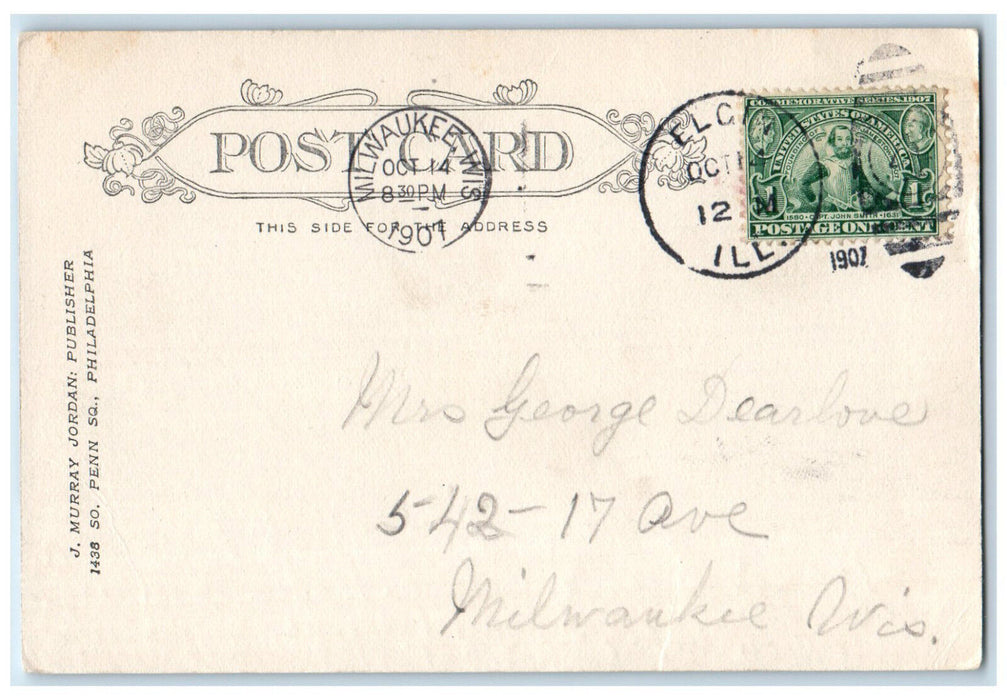 POST CARD
THIS SIDE FOR THE ADDRESS
MILWAUKEE, WIS
OCT 14
8 30 PM
1907
ILL.
12 M
1907
COMMEMORATIVE SERIES 1907
UNITED STATES OF AMERICA
1580 · CAPT. JOHN SMITH · 1631
1 1c
POSTAGE ONE CENT
J. MURRAY JORDAN: PUBLISHER
1438 SO. PENN SQ., PHILADELPHIA
Mrs George Dearlove
542-17 Ave
Milwaukee Wis.